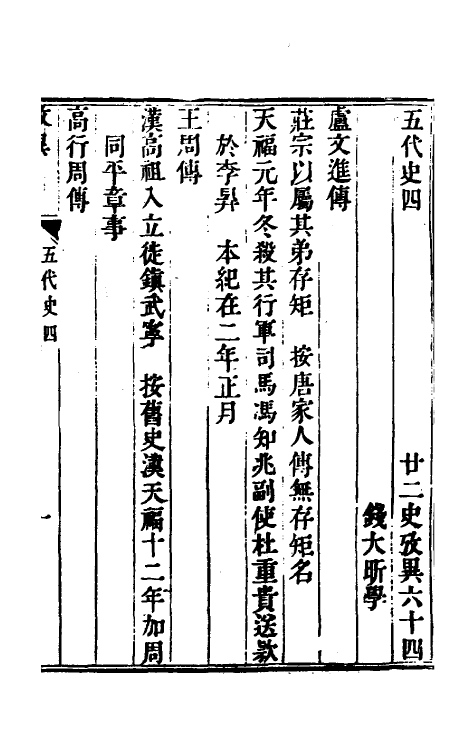 五代史四 廿二史攷異六十四
錢大昕學
盧文進傳
莊宗以屬其弟存矩 按唐家人傳無存矩名
天福元年冬殺其行軍司馬馮知兆副使杜重貴送款
於李昪 本紀在二年正月
王周傳
漢高祖入立徙鎮武寧 按舊史漢天福十二年加周
同平章事
高行周傳
五代史四 一